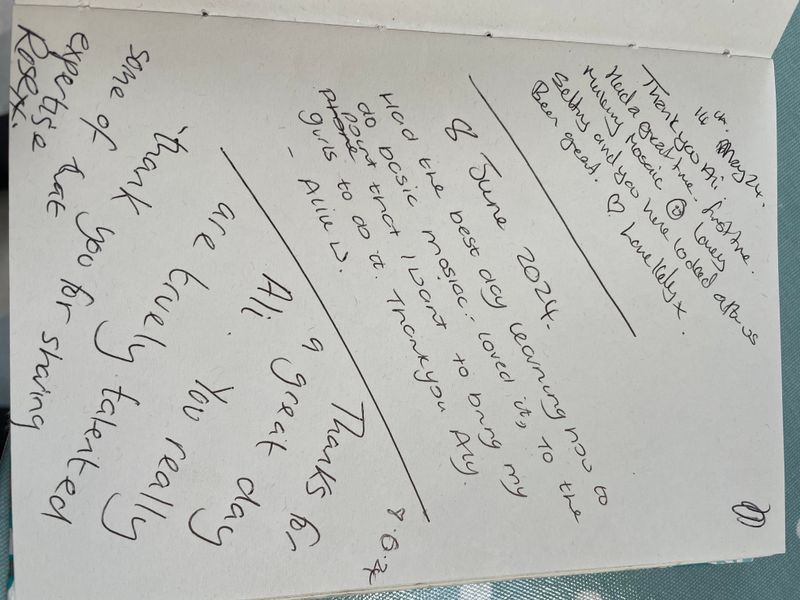 May 24.
Thank you Ali.
Had a great time. first time.
Making Mosaic lovely
setting and you have looked after us
Been great. ♡ Love Kelly x
8 June 2024.
Had the best day learning how to
do basic mosiac - loved it, to the
point that I want to bring my
girls to do it. Thankyou Aly.
8.6.
Thanks for
a great day
Ali. You really
are truely talented
thank you for sharing
some of that
expertise
Rose x.